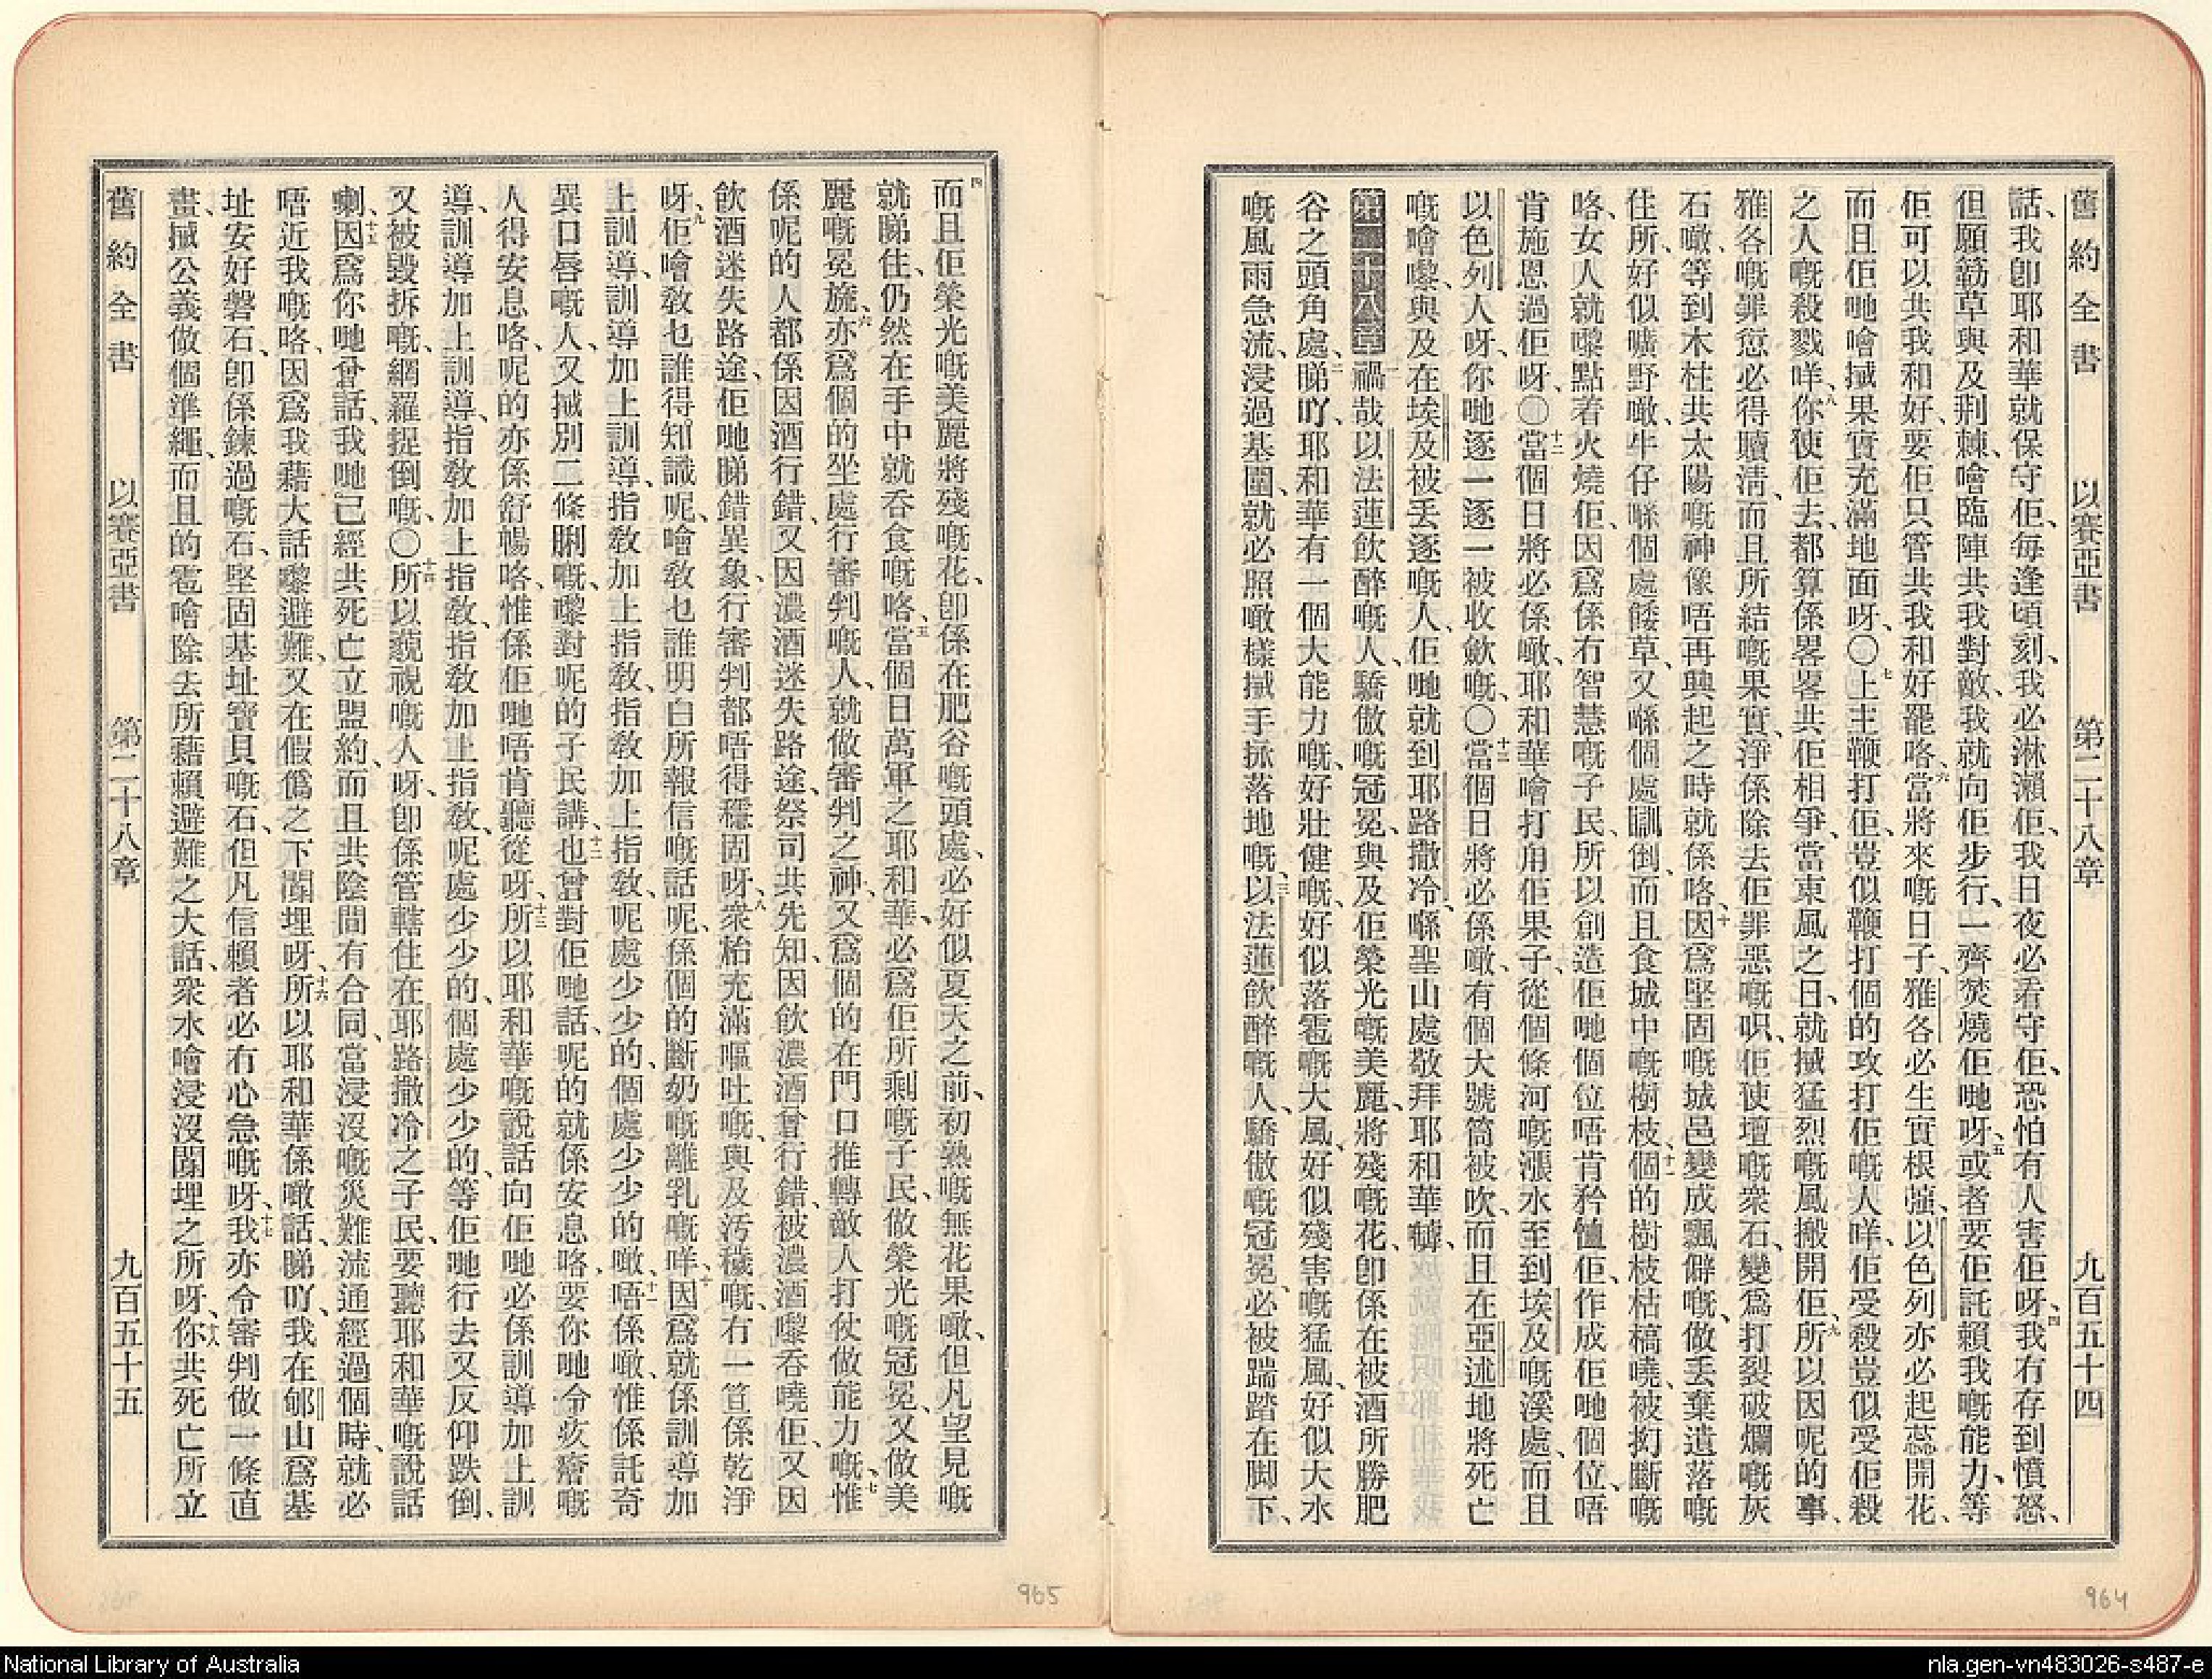 舊約全書　以賽亞書　第二十八章　九百五十四
話、我卽耶和華就保守佢、每逢頃刻、我必淋灑佢、我日夜必看守佢、恐怕有人害佢呀、四我冇存到憤怒、
但願簕草與及荆棘噲臨陣共我對敵、我就向佢步行、一齊焚燒佢哋呀、五或者要佢託賴我嘅能力、等
佢可以共我和好、要佢只管共我和好罷咯、六當將來嘅日子、雅各必生實根強、以色列亦必起蕊開花、
而且佢哋噲搣果實充滿地面呀、〇七上主鞭打佢、豈似鞭打個的攻打佢嘅人咩、佢受殺豈似受佢殺
之人嘅殺戮咩、八你使佢去、都算係畧畧共佢相爭、當東風之日、就搣猛烈嘅風搬開佢、九所以因呢的事、
雅各嘅罪愆必得贖淸、而且所結嘅果實、淨係除去佢罪惡嘅呮、佢使壇嘅衆石、變爲打裂破爛嘅灰
石噉、等到木柱共太陽嘅神像唔再興起之時就係咯、十因爲堅固嘅城邑變成飄僻嘅、做丢棄遺落嘅
住所、好似曠野噉、牛仔喺個處餧草、又喺個處瞓倒、而且食城中嘅樹枝、十一個的樹枝枯槁曉、被抝斷嘅
咯、女人就嚟點着火燒佢、因爲係冇智慧嘅子民、所以創造佢哋個位唔肯矜恤佢、作成佢哋個位、唔
肯施恩過佢呀、〇十二當個日將必係噉、耶和華噲打甪佢果子、從個條河嘅漲水至到埃及嘅溪處、而且
以色列人呀、你哋逐一逐一被收歛嘅、〇十三當個日將必係噉、有個大號筒被吹、而且在亞述地將死亡
嘅噲嚟、與及在埃及被丢逐嘅人、佢哋就到耶路撒冷、喺聖山處敬拜耶和華嚹、
第二十八章　一禍哉以法蓮飮醉嘅人、驕傲嘅冠冕、與及佢榮光嘅美麗、將殘嘅花、卽係在被酒所勝肥
谷之頭角處、二睇吖、耶和華有一個大能力嘅、好壯健嘅、好似落雹嘅大風、好似殘害嘅猛風、好似大水
嘅風雨急流、浸過基圍、就必照噉樣搣手拯落地嘅、三以法蓮飮醉嘅人、驕傲嘅冠冕、必被踹踏在脚下、
四而且佢榮光嘅美麗將殘嘅花、卽係在肥谷嘅頭處、必好似夏天之前、初熟嘅無花果噉、但凡望見嘅
就睇住、仍然在手中就吞食嘅咯、五當個日萬軍之耶和華、必爲佢所剩嘅子民、做榮光嘅冠冕、又做美
麗嘅冕旒、六亦爲個的坐處行審判嘅人、就做審判之神、又爲個的在門口推轉敵人打仗做能力嘅、七惟
係呢的人都係因酒行錯、又因濃酒迷失路途、祭司共先知、因飮濃酒曾行錯、被濃酒嚟吞曉佢、又因
飮酒迷失路途、佢哋睇錯異象、行審判都唔得穩固呀、八衆枱充滿嘔吐嘅、與及汚穢嘅、冇一笪係乾淨
呀、九佢噲敎乜誰得知識呢、噲敎乜誰明白所報信嘅話呢、係個的斷奶嘅離乳嘅咩、十因爲就係訓導加
上訓導、訓導加上訓導、指敎加上指敎、指敎加上指敎、呢處少少的、個處少少的噉、十一唔係噉、惟係託奇
異口唇嘅人、又搣別二條脷嘅、嚟對呢的子民講、十二也曾對佢哋話、呢的就係安息咯、要你哋令攰瘠嘅
人得安息咯、呢的亦係舒暢咯、惟係佢哋唔肯聽從呀、十三所以耶和華嘅說話向佢哋必係訓導加上訓
導、訓導加上訓導、指敎加上指敎、指敎加上指敎、呢處少少的、個處少少的、等佢哋行去又反仰跌倒、
又被毀拆嘅、網羅捉倒嘅、〇十四所以藐視嘅人呀、卽係管轄住在耶路撒冷之子民、要聽耶和華嘅說話
喇、十五因爲你哋曾話、我哋已經共死亡立盟約、而且共陰間有合同、當浸沒嘅災難流通經過個時、就必
唔近我嘅咯、因爲我藉大話嚟避難、又在假僞之下𨳊埋呀、十六所以耶和華係噉話、睇吖、我在郇山爲基
址安好磐石、卽係鍊過嘅石、堅固基址寶貝嘅石、但凡信賴者必冇心急嘅呀、十七我亦令審判做一條直
畫、搣公義做個準繩、而且的雹噲除去所藉賴避難之大話、衆水噲浸沒𨳊埋之所呀、十八你共死亡所立
舊約全書　以賽亞書　第二十八章　九百五十五
965
964
National Library of Australia
nla.gen-vn483026-s487-e